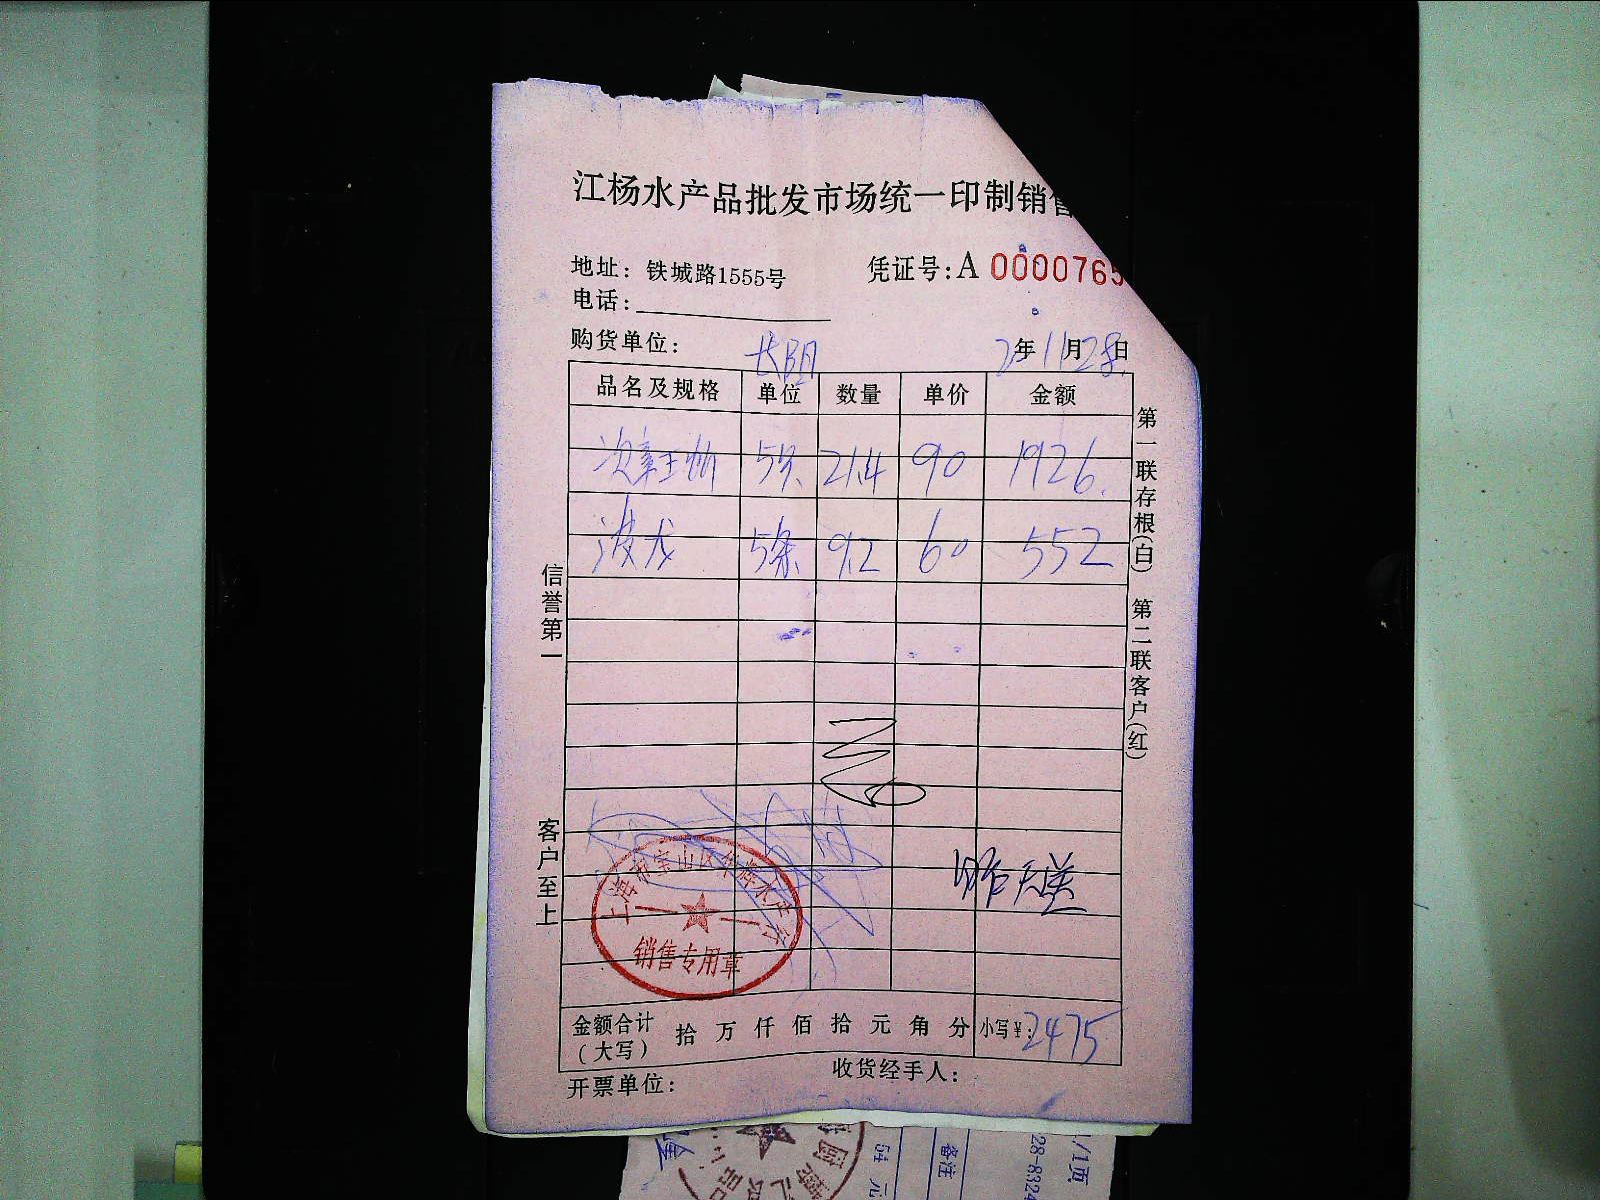 江杨水产品批发市场统一印制销售
地址：铁城路1555号
凭证号：A 0000765
电话：
购货单位： 长阳
2年11月28日
品名及规格 单位 数量 单价 金额
5条 21.4 90 1926.
波龙 5条 9.2 60 552
第一联存根(白) 第二联客户(红)
信誉第一
客户至上
上海市宝山区华辉水产行
销售专用章
金额合计 拾 万 仟 佰 拾 元 角 分 小写¥：2475
（大写）
收货经手人：
开票单位：
54 元
备注
28-8324
1/1页